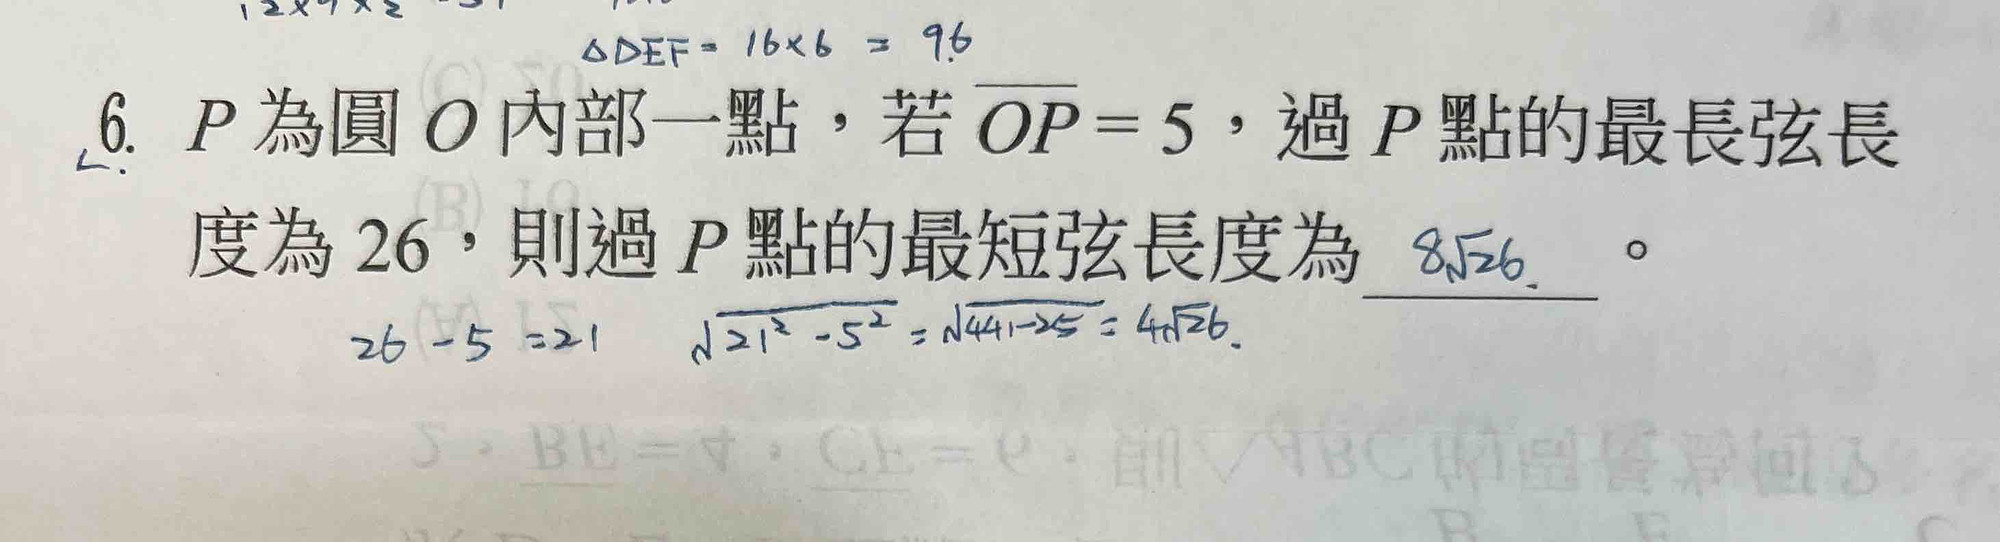 △DEF = 16×6 = 96
6. P 為圓 O 內部一點，若 OP = 5，過 P 點的最長弦長
度為 26，則過 P 點的最短弦長度為 8√26 。
26 - 5 = 21 √21² - 5² = √441-25 = 4√26.